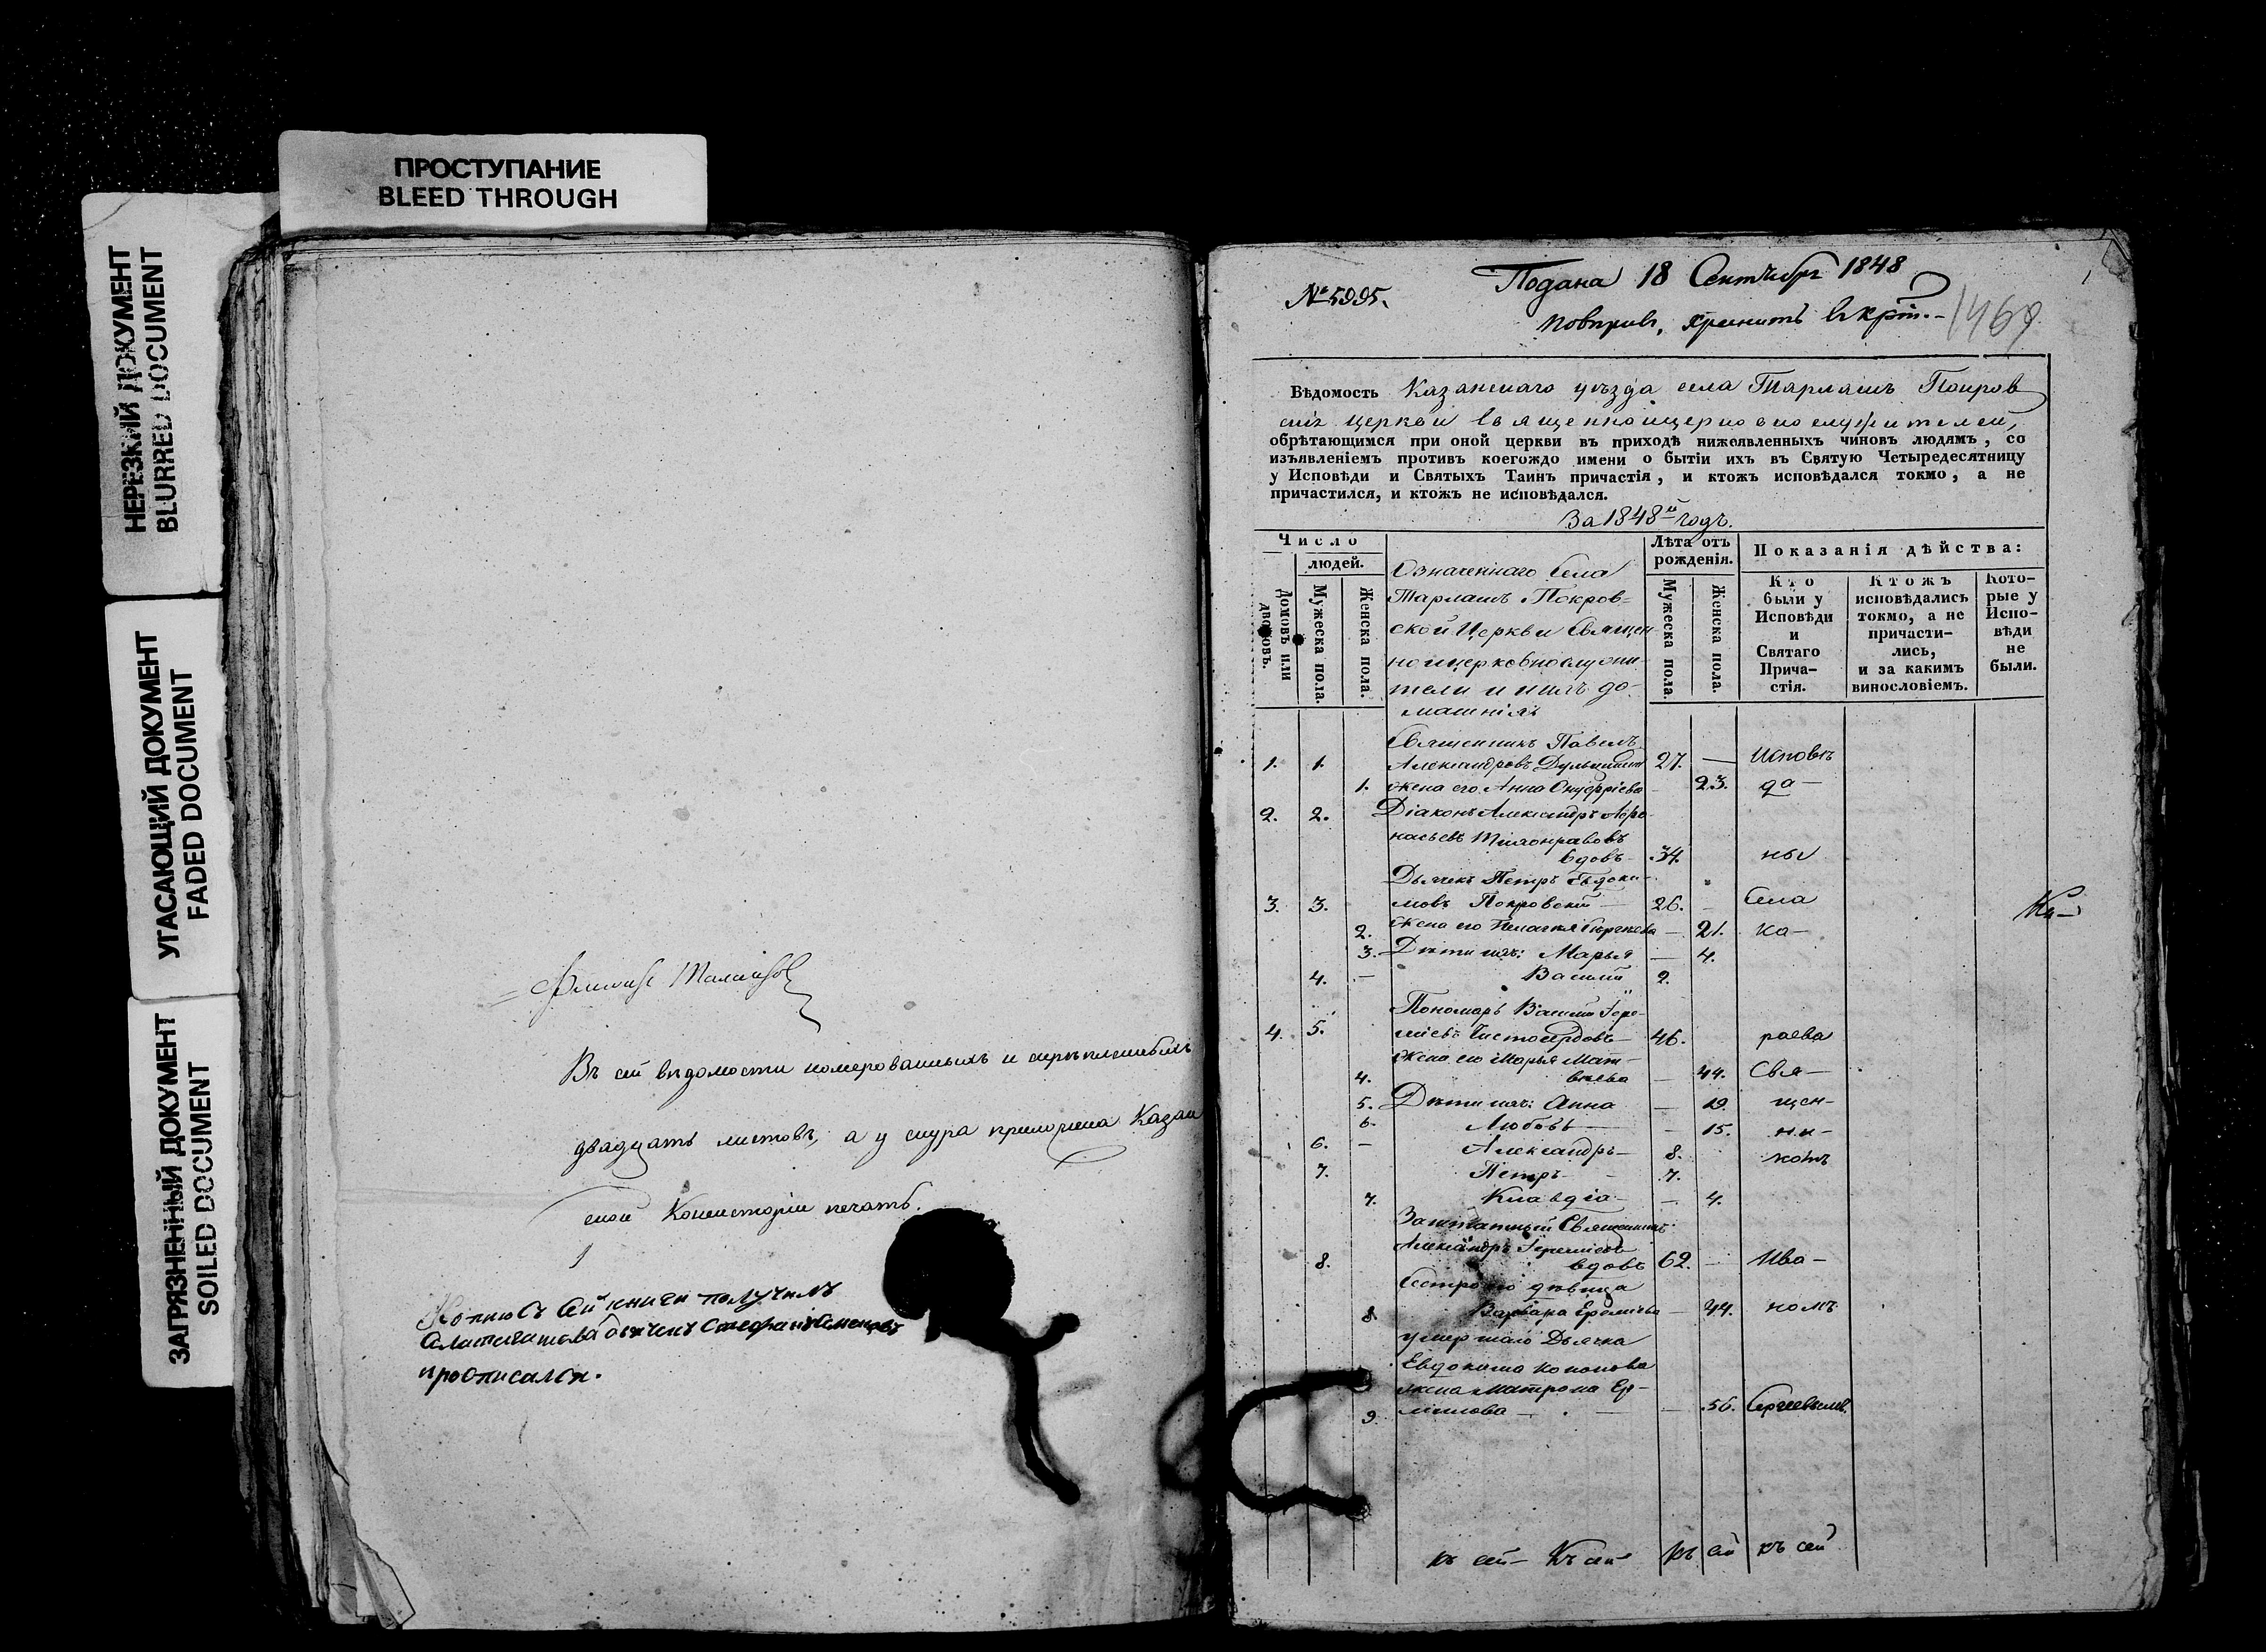 ПРОСТУПАНИЕ
BLEED THROUGH
НЕРЕЗКИЙ ДОКУМЕНТ
BLURRED DOCUMENT
УГАСАЮЩИЙ ДОКУМЕНТ
FADED DOCUMENT
ЗАГРЯЗНЕННЫЙ ДОКУМЕНТ
SOILED DOCUMENT
Въ сей вѣдомости номерованныхъ и скрѣпленныхъ
двадцать листовъ, а у снура приложена Казан
ской Консисторіи печать.
Копию съ сей книги получилъ
дьячекъ Стефанъ Семеновъ
проописался.
№ 5995.
Подана 18 Сентября 1848
хранить
1469
Вѣдомость Казанскаго уѣзда села Тарлашъ Покров
ской церкви священноицерковнослужителей,
обрѣтающимся при оной церкви въ приходѣ нижеявленныхъ чиновъ людямъ, со
изъявленіемъ противъ коегождо имени о бытіи ихъ въ Святую Четыредесятницу
у Исповѣди и Святыхъ Таинъ причастія, и ктожъ исповѣдался токмо, а не
причастился, и ктожъ не исповѣдался.
За 1848й годъ.
Число
людей.
Домовъ или дворовъ.
Мужеска пола.
Женска пола.
Означеннаго Села
Тарлашъ Покров-
ской Церкви Священ-
ноицерковнослужи-
тели и ихъ до-
машнія
Лѣта отъ рожденія.
Мужеска пола.
Женска пола.
Показанія дѣйства:
Кто были у Исповѣди и Святаго Прича-стія.
Ктожъ исповѣдались токмо, а не причасти-лись, и за какимъ винословіемъ.
Кото-рые у Испо-вѣди не были.
Священникъ Павелъ
1. 1. Александровъ 27. — Исповѣ
1. жена его Анна — 23. да —
2. 2. Діаконъ Александръ Афо-
насьевъ
вдовъ — 34. ны
Дьячекъ Петръ Евдоки-
3. 3. мовъ Покровскій — 26. — Села
2. жена его Пелагия — 21. Ка —
3. Дѣти ихъ: Марья — 4.
4. — Василій 2.
Пономарь Василій Іере-
4. 5. міевъ Чистосердовъ — 46. раева
жена его Марья Мат-
4. вѣева — 44. Свя —
5. Дѣти ихъ: Анна — 19. щен-
6. Любовь — — 15. ни-
6. — Александръ — 8. комъ
7. Петръ — 7.
7. Клавдіа — — 4.
Заштатный Священникъ
Александръ Іереміевъ
8. вдовъ 62. — Ива —
Сестра его дѣвица
8. Варвара Еремѣева — 44. номъ
умершаго Дьячка
Евдокима Кононова
жена Матрона Ер-
9. милова — — 56. Сергеевымъ.
Ка —
къ сей — Къ сей къ сей къ сей